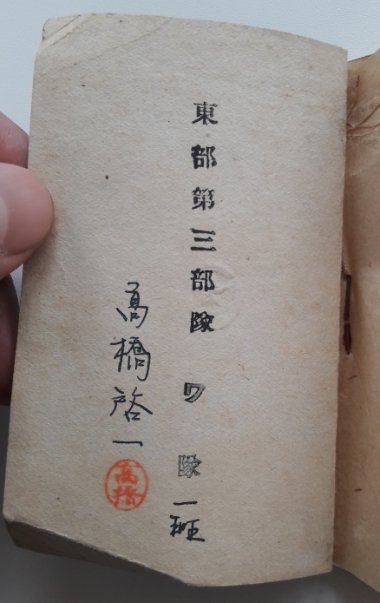 東部第三部隊ワ隊一班
高橋啓一
高橋